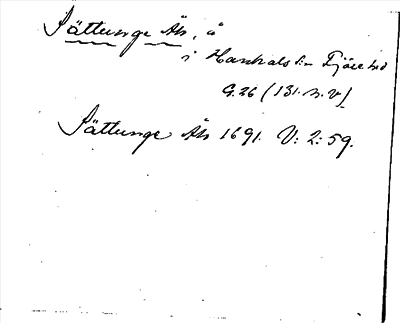 Sättunge Åh, å
i Hanhals sn Fjäre hd
G. 26 (131. n. v)
Sättunge Åh 1691. V: 2: 59.